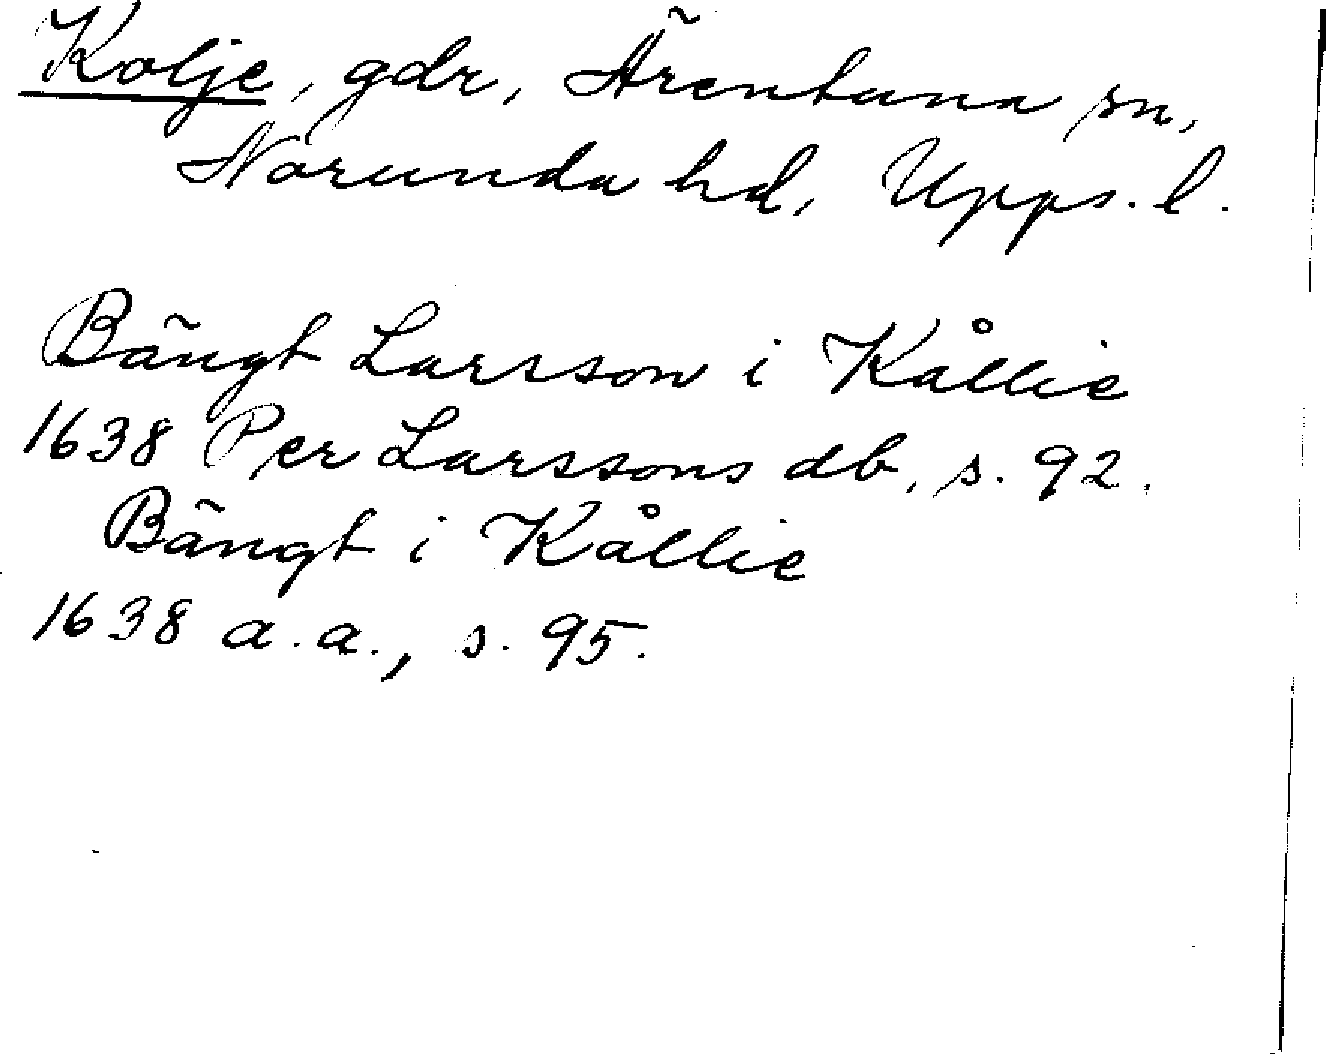 Kolje, gdr, Ärentuna sn,
Norunda hd, Upps. l.
Bängt Larsson i Kållie
1638 Per Larssons db, s. 92.
Bängt i Kållie
1638 a.a., s. 95.